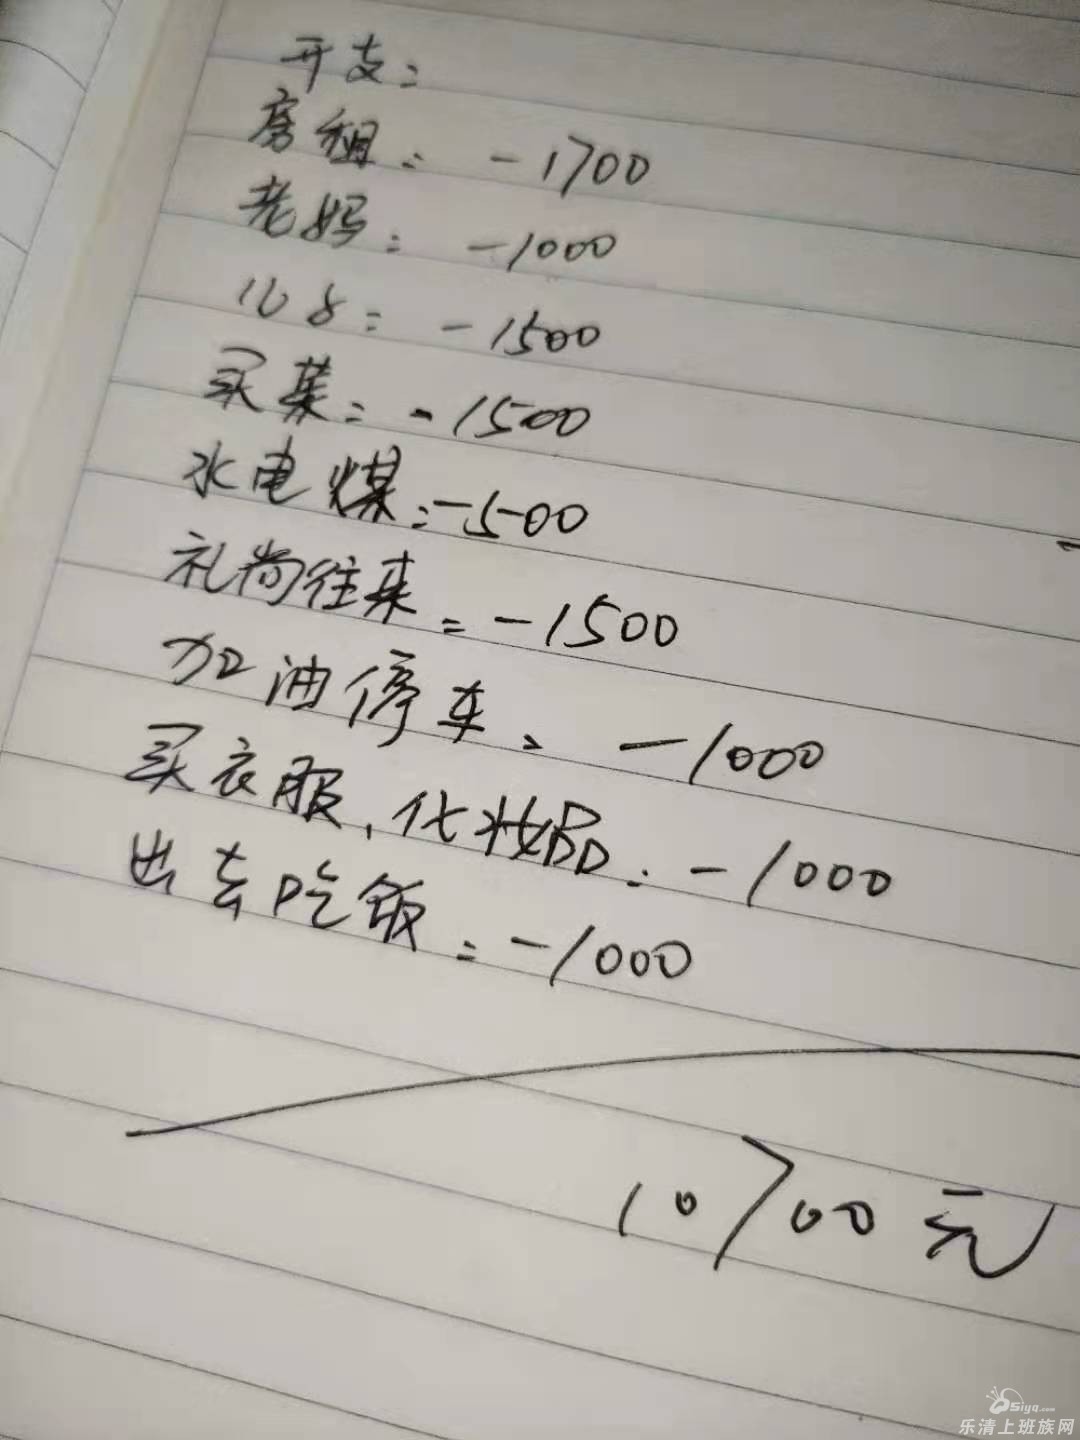 开支：
房租：-1700
老妈：-1000
：-1500
买菜：-1500
水电煤：-500
礼尚往来：-1500
加油停车：-1000
买衣服、化妆品：-1000
出去吃饭：-1000
10700元
Siyq.com
乐清上班族网